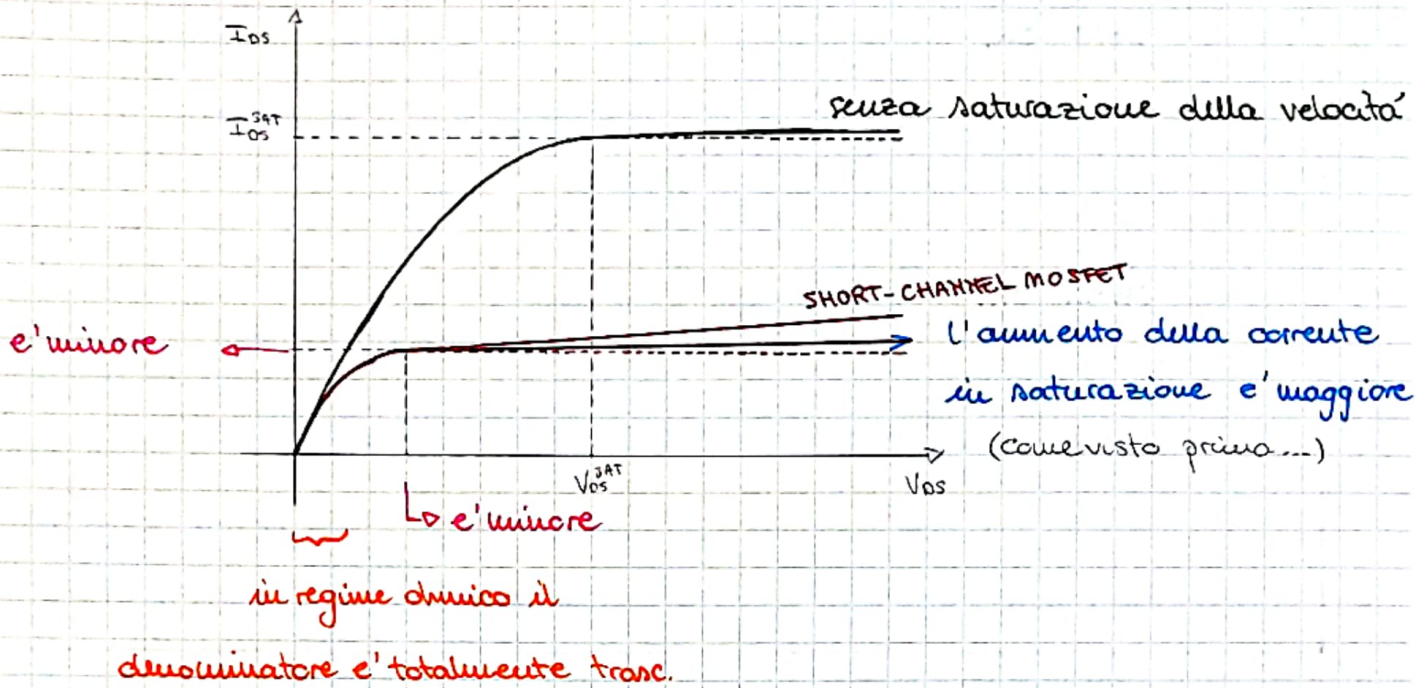 I_DS
I_DS^SAT
senza saturazione della velocità
SHORT-CHANNEL MOSFET
e' minore
l'aumento della corrente
in saturazione e' maggiore
(come visto prima...)
V_DS^SAT
V_DS
e' minore
in regime ohmico il
denominatore e' totalmente trasc.